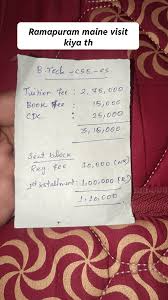 Ramapuram maine visit
kiya th
B.Tech - CSE - CS
Tuition fee : 2,75,000
Book fee : 15,000
CDC : 25,000
3,15,000
Seat block
Reg fee 10,000 (NR)
1st installment 1,00,000 (R)
1,10,000